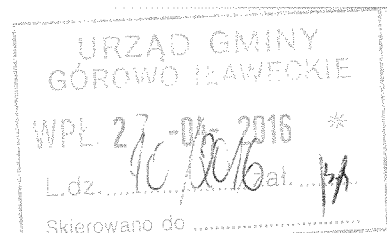 URZĄD GMINY
GÓROWO IŁAWECKIE
WPŁ. 27 -04- 2016 *
L.dz. /2016 Zał.
Skierowano do